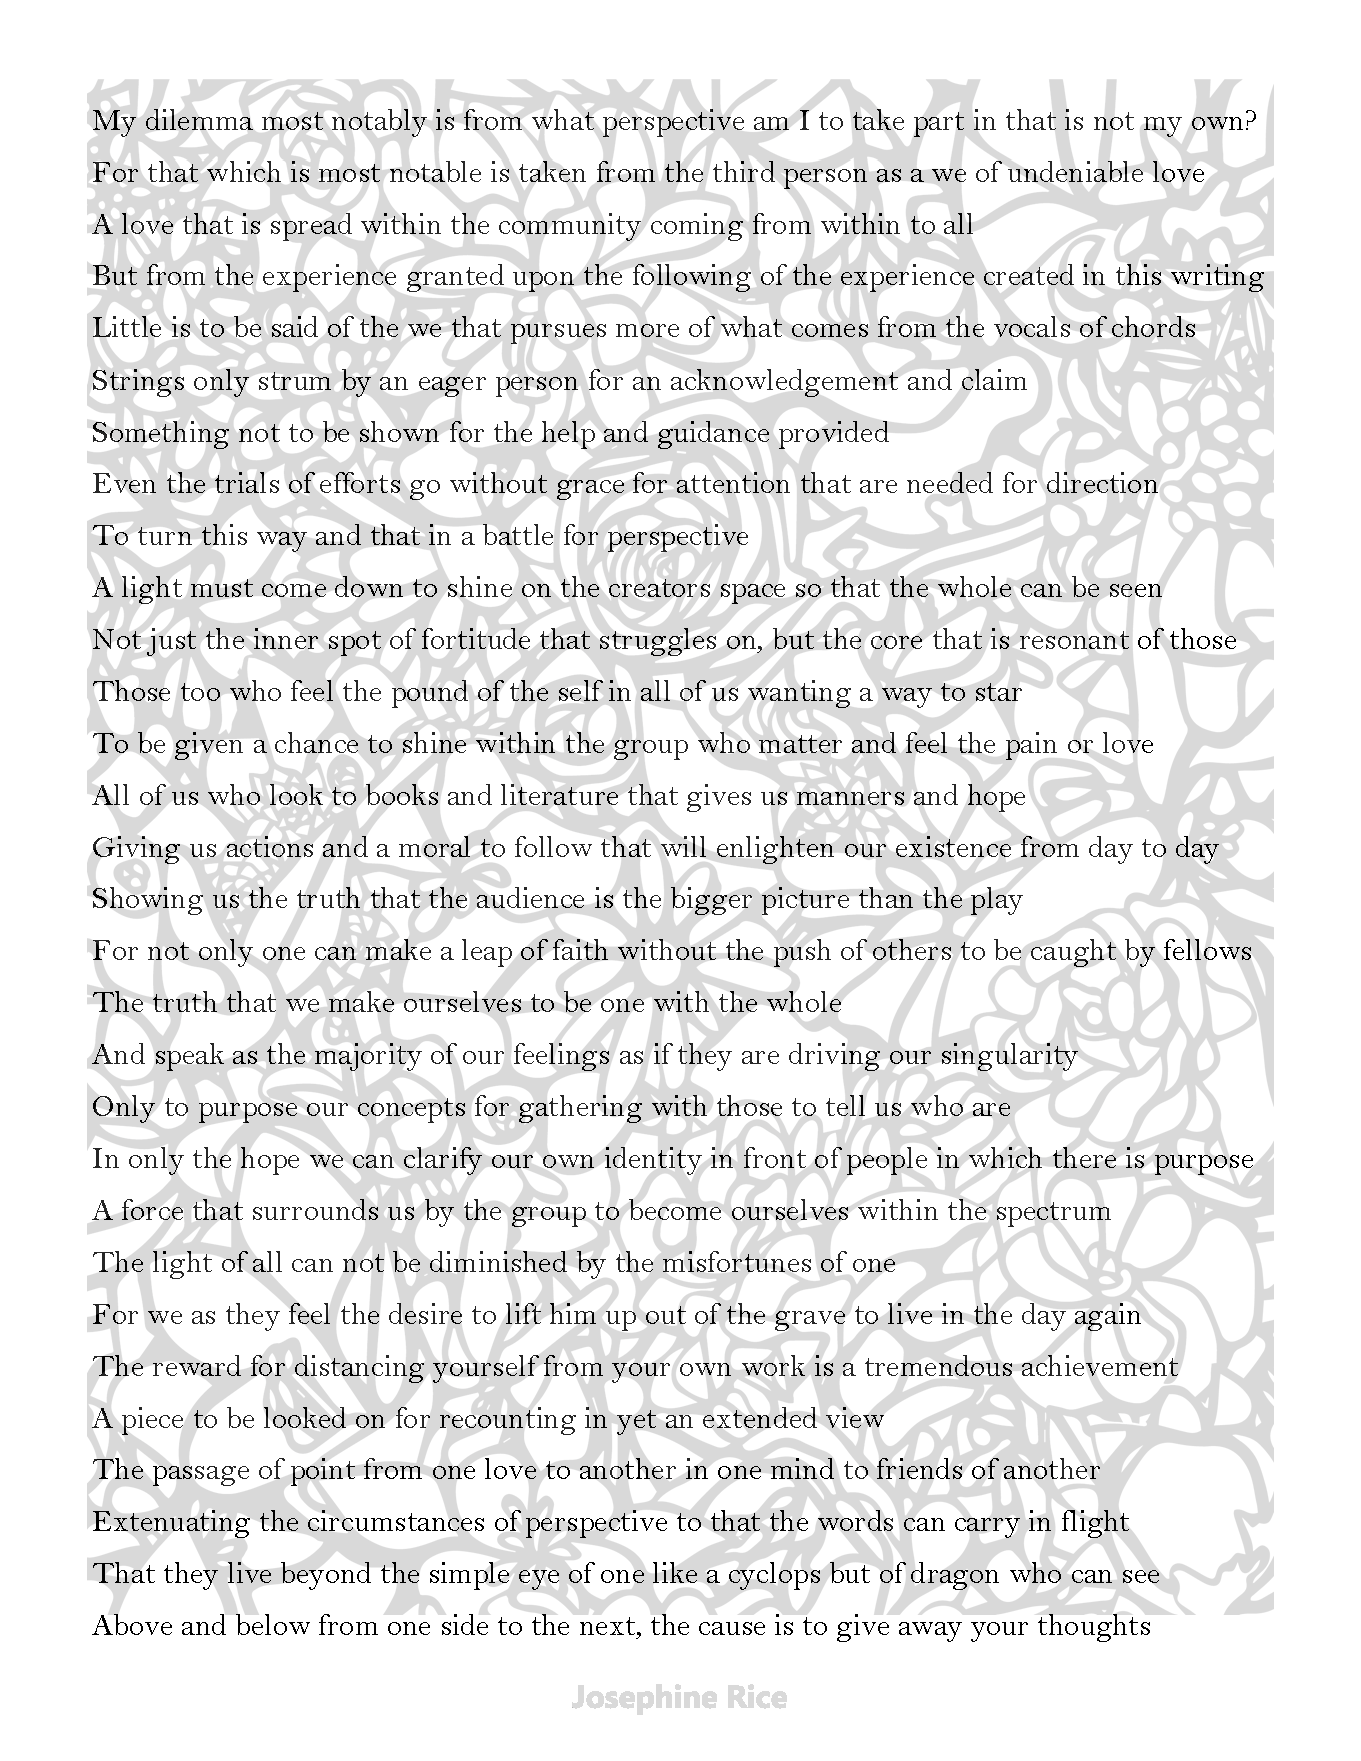 My dilemma most notably is from what perspective am I to take part in that is not my own?
For that which is most notable is taken from the third person as a we of undeniable love
A love that is spread within the community coming from within to all
But from the experience granted upon the following of the experience created in this writing
Little is to be said of the we that pursues more of what comes from the vocals of chords
Strings only strum by an eager person for an acknowledgement and claim
Something not to be shown for the help and guidance provided
Even the trials of efforts go without grace for attention that are needed for direction
To turn this way and that in a battle for perspective
A light must come down to shine on the creators space so that the whole can be seen
Not just the inner spot of fortitude that struggles on, but the core that is resonant of those
Those too who feel the pound of the self in all of us wanting a way to star
To be given a chance to shine within the group who matter and feel the pain or love
All of us who look to books and literature that gives us manners and hope
Giving us actions and a moral to follow that will enlighten our existence from day to day
Showing us the truth that the audience is the bigger picture than the play
For not only one can make a leap of faith without the push of others to be caught by fellows
The truth that we make ourselves to be one with the whole
And speak as the majority of our feelings as if they are driving our singularity
Only to purpose our concepts for gathering with those to tell us who are
In only the hope we can clarify our own identity in front of people in which there is purpose
A force that surrounds us by the group to become ourselves within the spectrum
The light of all can not be diminished by the misfortunes of one
For we as they feel the desire to lift him up out of the grave to live in the day again
The reward for distancing yourself from your own work is a tremendous achievement
A piece to be looked on for recounting in yet an extended view
The passage of point from one love to another in one mind to friends of another
Extenuating the circumstances of perspective to that the words can carry in flight
That they live beyond the simple eye of one like a cyclops but of dragon who can see
Above and below from one side to the next, the cause is to give away your thoughts
Josephine Rice